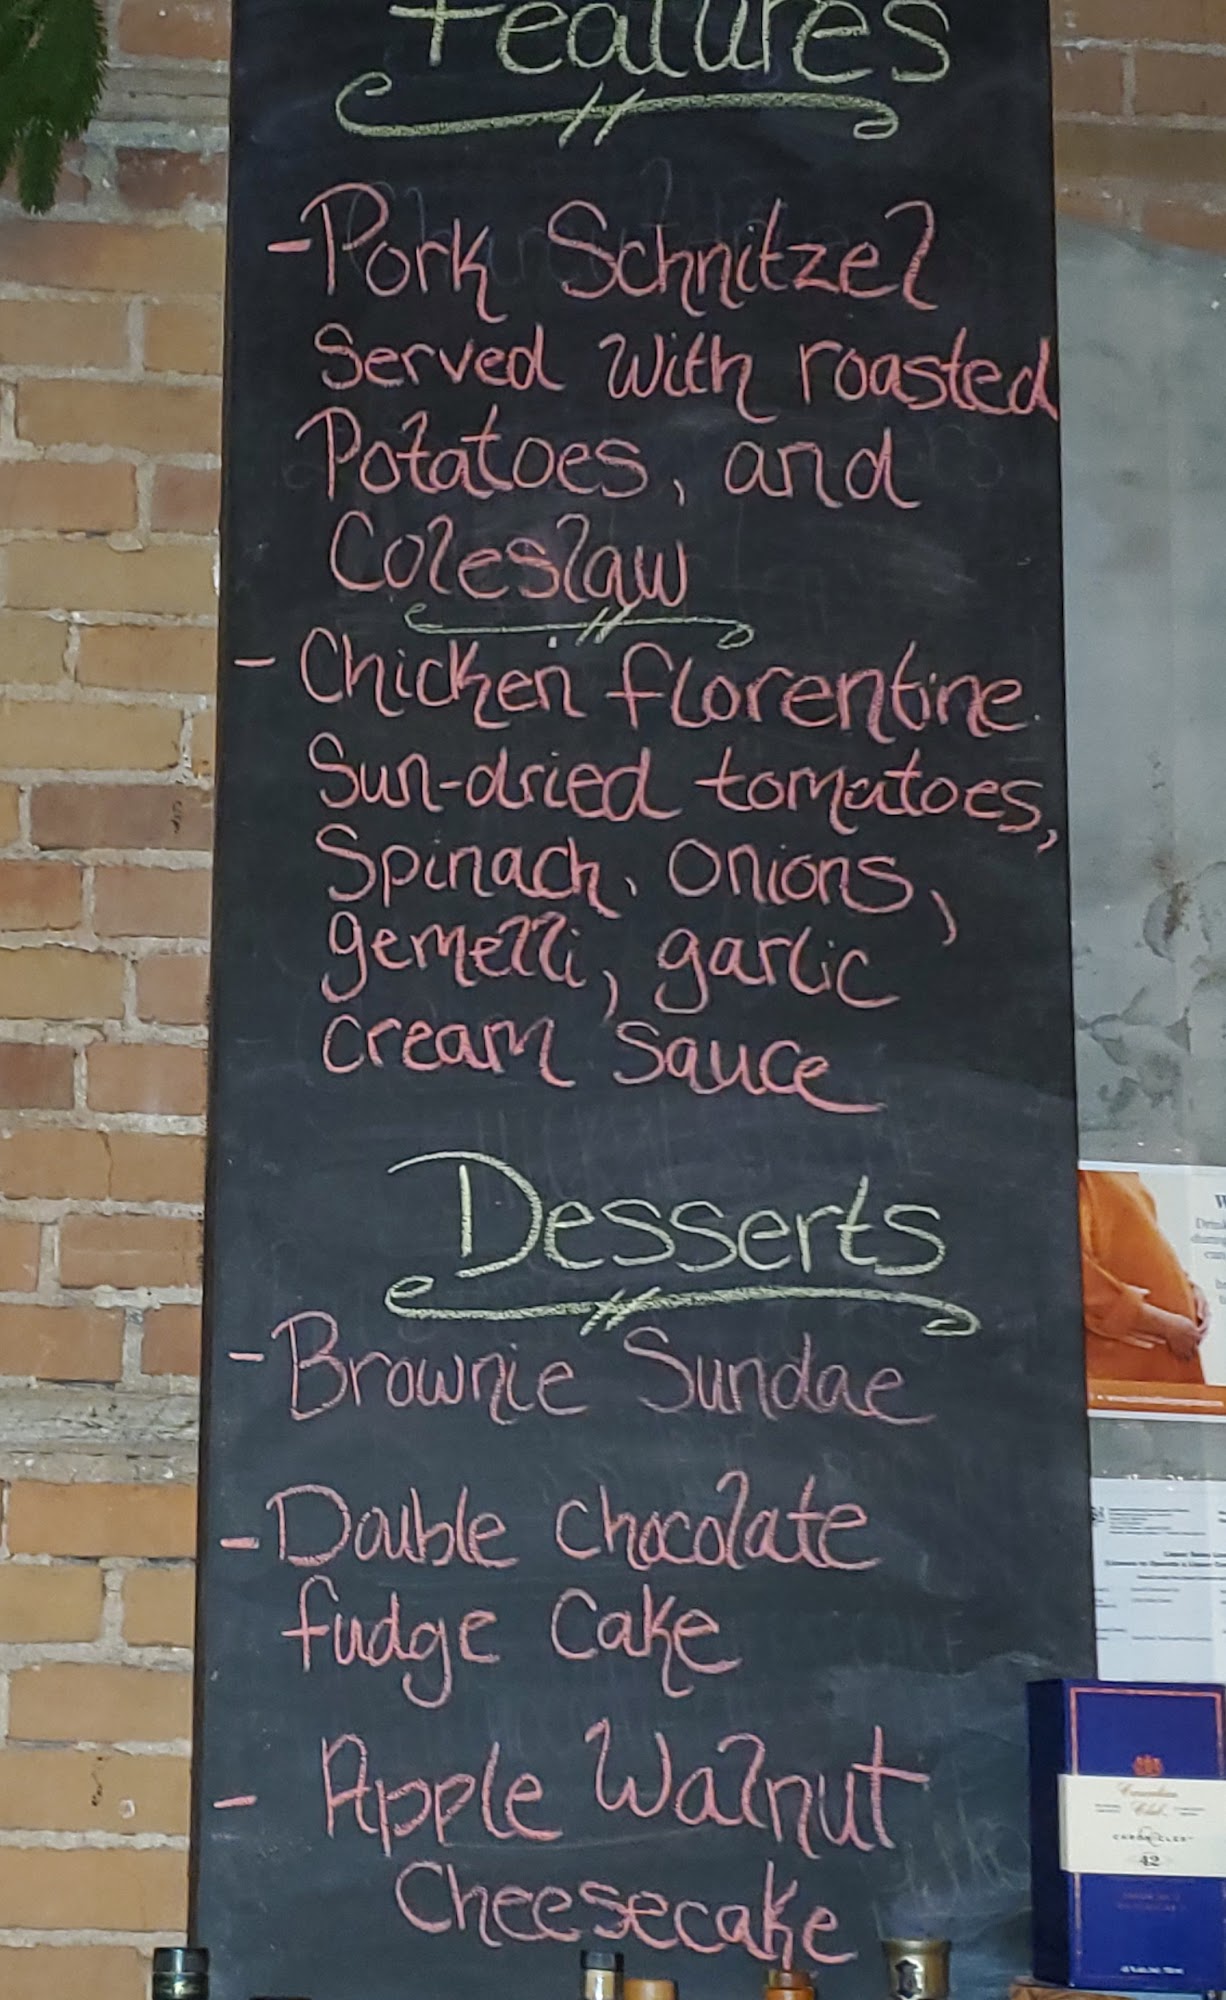 Features
-Pork Schnitzel
Served with roasted
Potatoes, and
Coleslaw
- Chicken florentine
Sun-dried tomatoes,
Spinach, onions,
gemelli, garlic
cream sauce
Desserts
- Brownie Sundae
- Double chocolate
fudge Cake
- Apple Walnut
Cheesecake
Canadian
Club
CHRONICLES
42